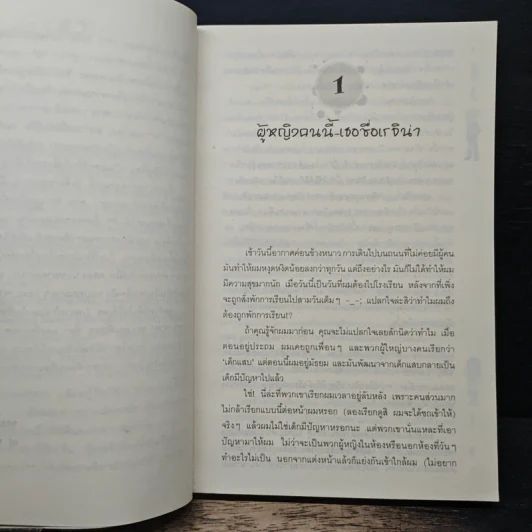 1
ผู้หญิงคนนี้-เธอชื่อเรจิน่า
เช้าวันนี้อากาศค่อนข้างหนาว การเดินไปบนถนนที่ไม่ค่อยมีผู้คน
มันทำให้ผมหงุดหงิดน้อยลงกว่าทุกวัน แต่ถึงอย่างไร มันก็ไม่ได้ทำให้ผม
มีความสุขมากนัก เมื่อวันนี้เป็นวันที่ผมต้องไปโรงเรียน หลังจากที่เพิ่ง
จะถูกสั่งพักการเรียนไปสามวันเต็มๆ -_-; แปลกใจล่ะสิว่าทำไมผมถึง
ต้องถูกพักการเรียน!?
ถ้าคุณรู้จักผมมาก่อน คุณจะไม่แปลกใจเลยสักนิดว่าทำไม เมื่อ
ตอนอยู่ประถม ผมเคยถูกเพื่อนๆ และพวกผู้ใหญ่บางคนเรียกว่า
'เด็กแสบ' แต่ตอนนี้ผมอยู่มัธยม และมันพัฒนาจากเด็กแสบกลายเป็น
เด็กมีปัญหาไปแล้ว
ใช่! นี่ล่ะที่พวกเขาเรียกผมเวลาอยู่ลับหลัง เพราะคนส่วนมาก
ไม่กล้าเรียกแบบนี้ต่อหน้าผมหรอก (ลองเรียกดูสิ ผมจะได้ชกเข้าให้)
จริงๆ แล้วผมไม่ใช่เด็กมีปัญหาหรอกนะ แต่พวกเขานั่นแหละที่เอา
ปัญหามาให้ผม ไม่ว่าจะเป็นพวกผู้หญิงในห้องหรือนอกห้องที่วันๆ
ทำอะไรไม่เป็น นอกจากแต่งหน้าแล้วก็แย่งกันเข้าใกล้ผม (ไม่อยาก